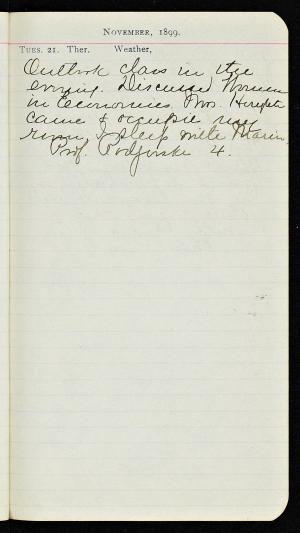 November, 1899.
Tues. 21. Ther. Weather,
Outlook class in the
evening. Discussed Women
in Economics. Mrs.
came & occupie my
room, I sleep with Marion.
Prof. 4.